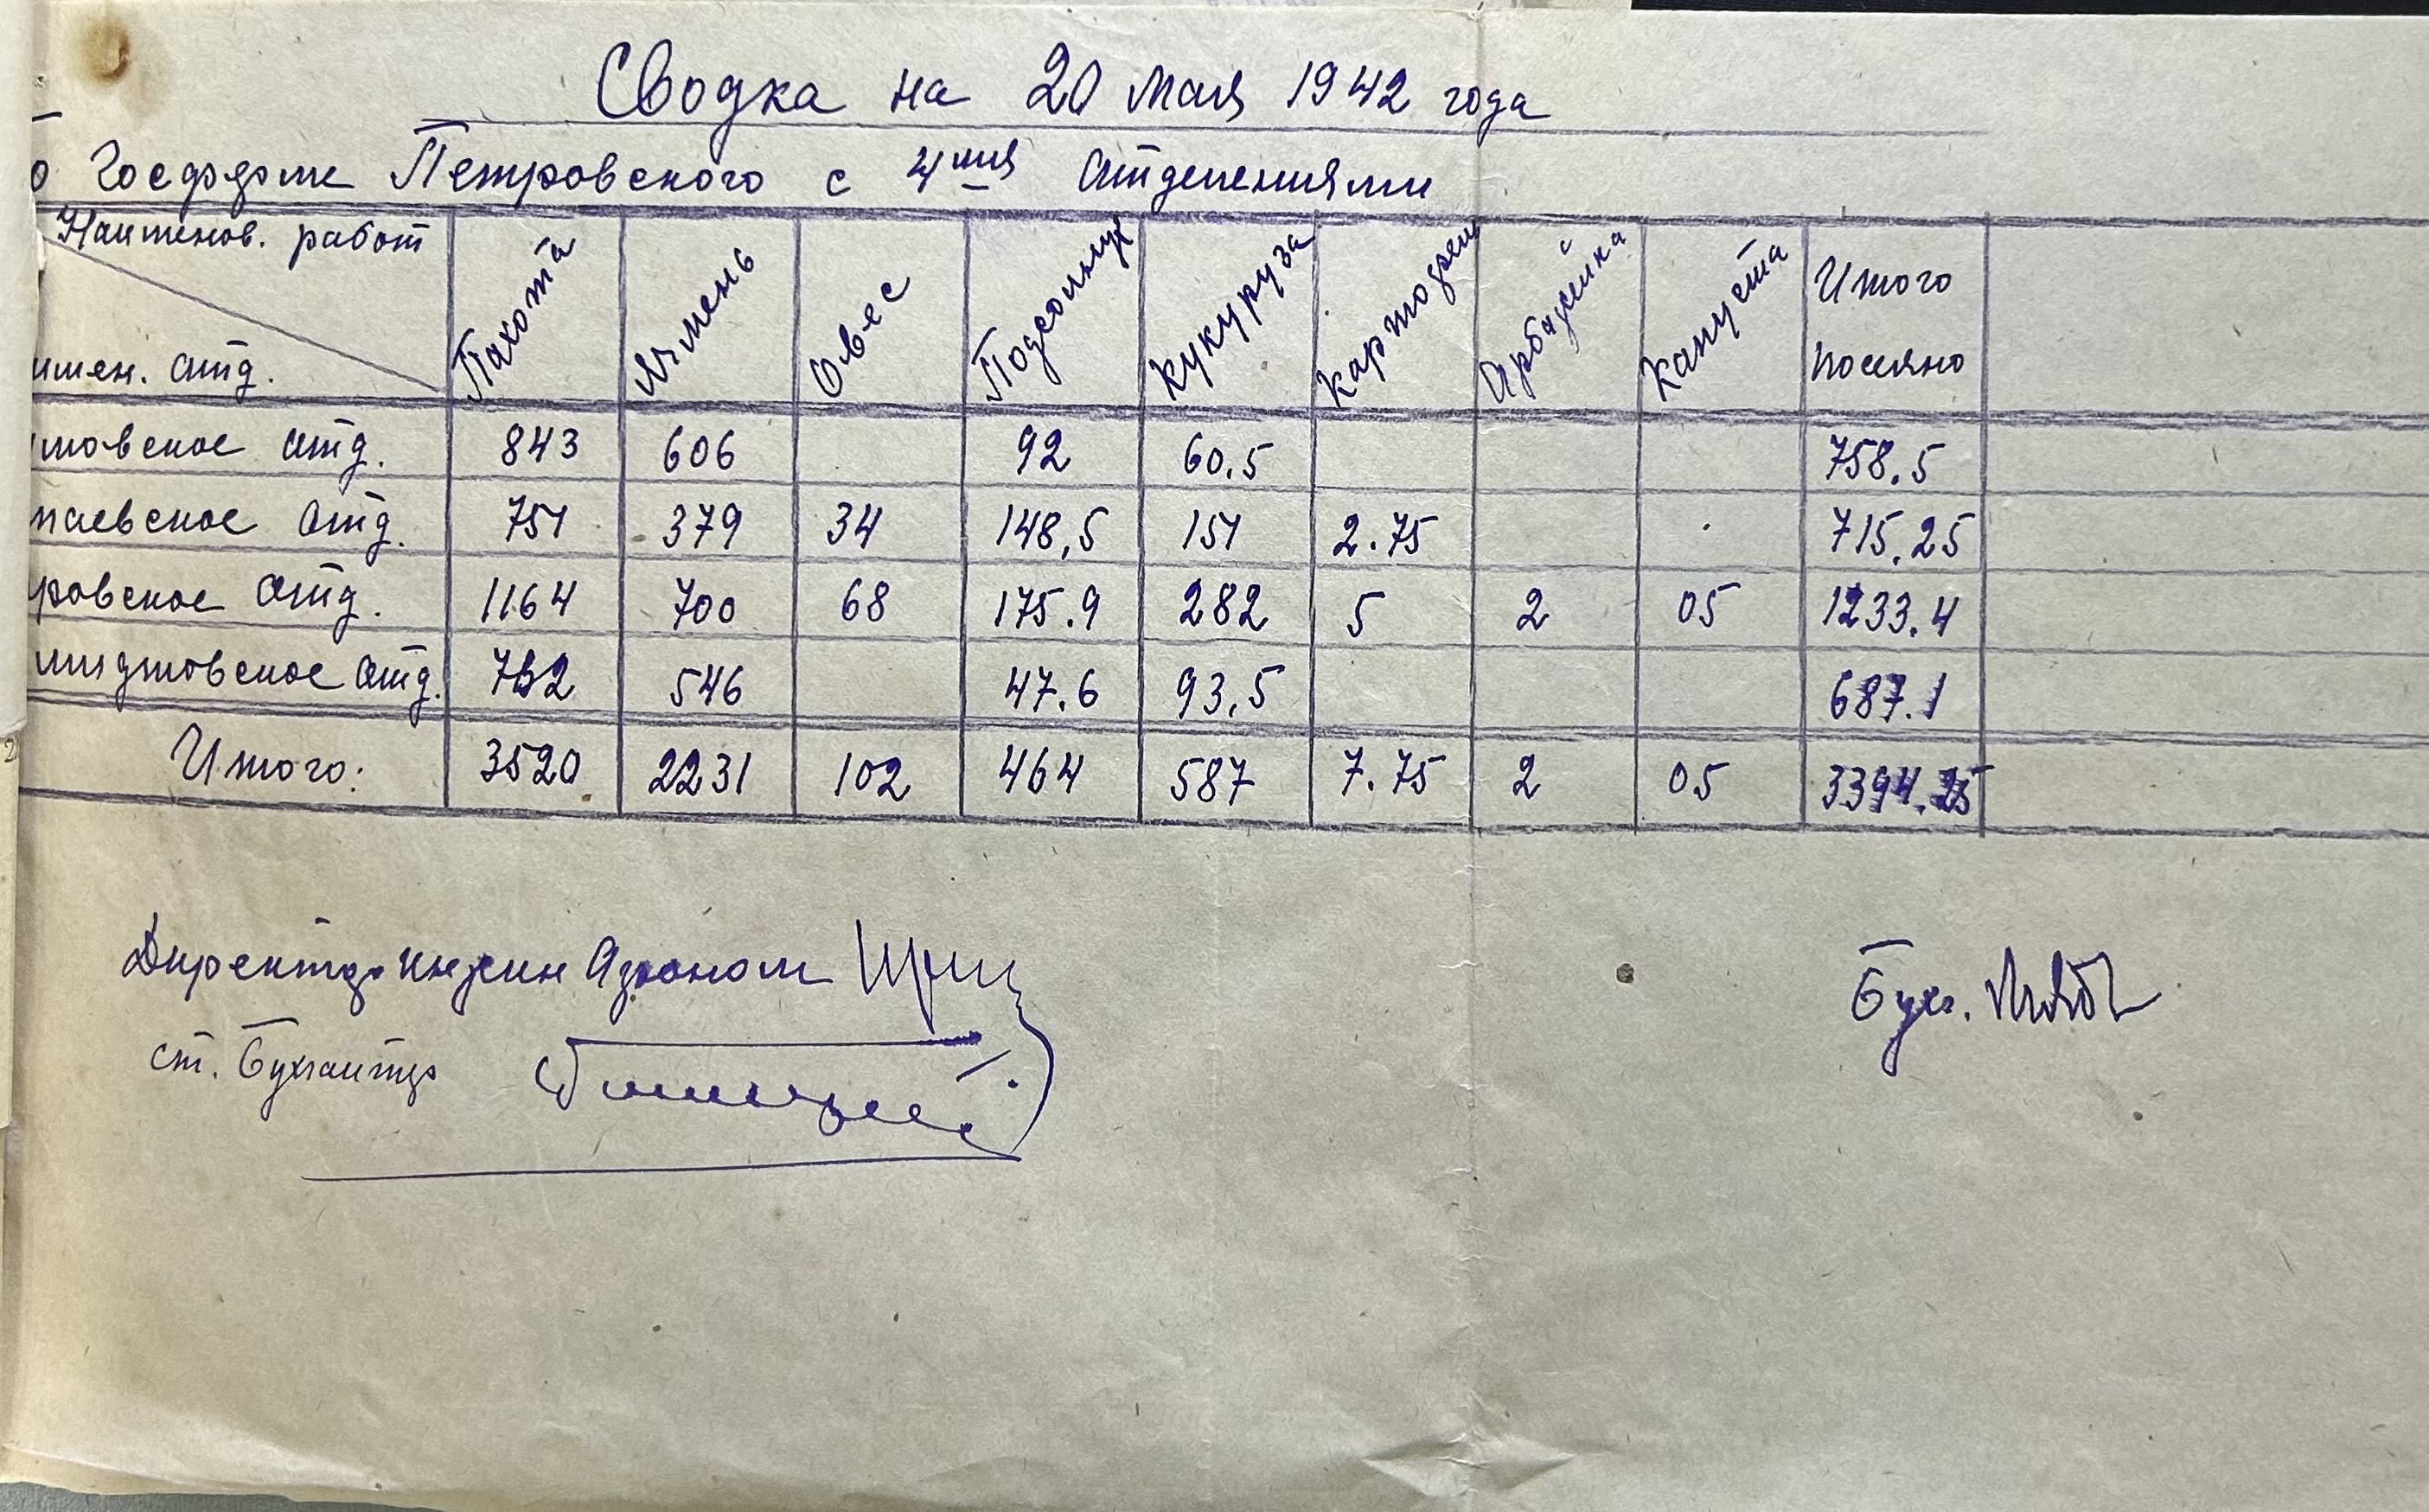 Сводка на 20 мая 1942 года
о Госферме Петровского с 4мя отделениями
Наименов. работ
имен. отд.
Пахота Ячмень Овес Подсолнух Кукуруза Картофель Капуста Итого посеяно
товское отд. 843 606 92 60.5 758.5
паевское отд. 751 379 34 148,5 151 2.75 715.25
ровское отд. 1164 700 68 175.9 282 5 2 05 1233.4
мидтовское отд. 762 546 47.6 93,5 687.1
Итого: 3520 2231 102 464 587 7.75 2 05 3394.25
Директор Агроном
ст. Бухгалтер
Бухг.